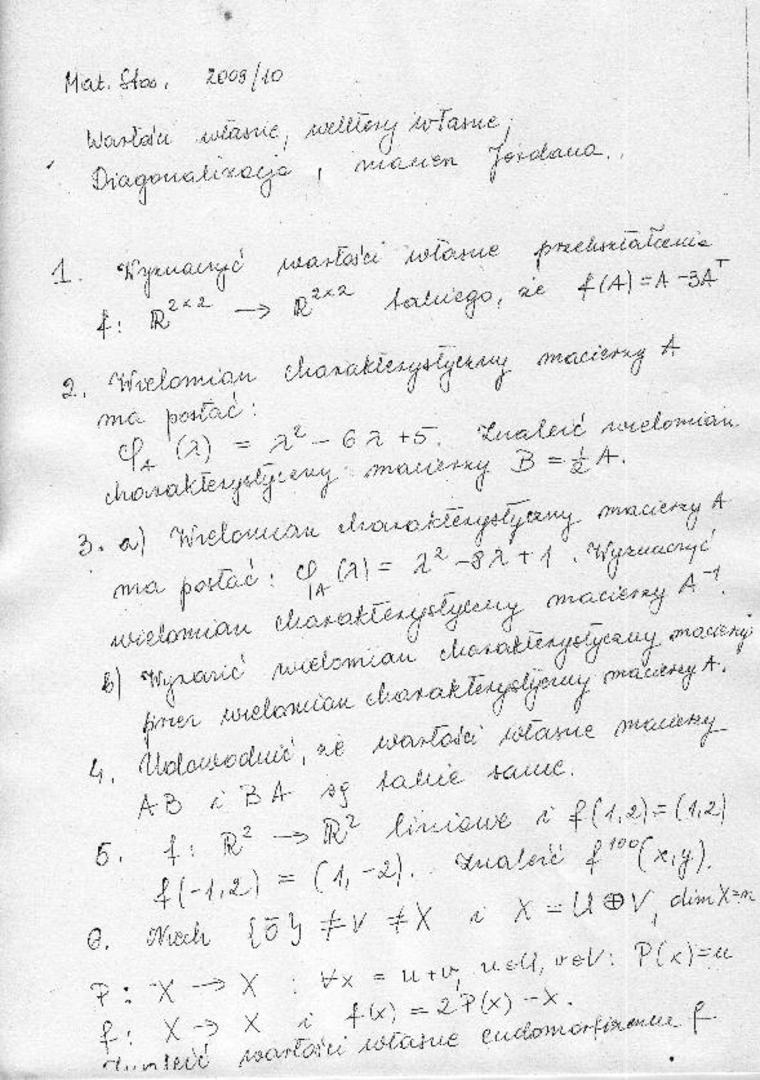 Mat. Stos. 2009/10
Wartości własne, wektory własne,
Diagonalizacja, macierz Jordana.
1. Wyznaczyć wartości własne przekształcenia
f: ℝ²ˣ² → ℝ²ˣ² takiego, że f(A) = A - 3Aᵀ
2. Wielomian charakterystyczny macierzy A
ma postać:
φ_A (λ) = λ² - 6λ + 5. Znaleźć wielomian
charakterystyczny macierzy B = ½ A.
3. a) Wielomian charakterystyczny macierzy A
ma postać: φ_A (λ) = λ² - 8λ + 1. Wyznaczyć
wielomian charakterystyczny macierzy A⁻¹.
b) Wyrazić wielomian charakterystyczny macierzy
przez wielomian charakterystyczny macierzy A.
4. Udowodnić, że wartości własne macierzy
AB i BA są takie same.
5. f: ℝ² → ℝ² liniowe i f(1,2) = (1,2)
f(-1,2) = (1,-2). Znaleźć f¹⁰⁰(x,y).
6. Niech {ō} ≠ V ≠ X i X = U ⊕ V, dim X = n
P: X → X : ∀x = u+v, u∈U, v∈V: P(x) = u
f: X → X i f(x) = 2P(x) - x.
Znaleźć wartości własne endomorfizmu f